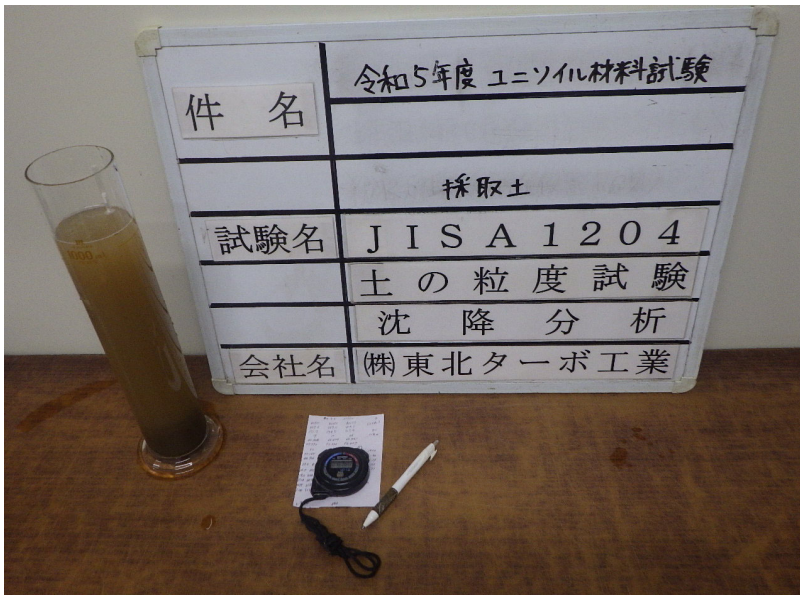 件名
令和5年度 ユニソイル材料試験
採取土
試験名
JISA1204
土の粒度試験
沈降分析
会社名
㈱東北ターボ工業
1000